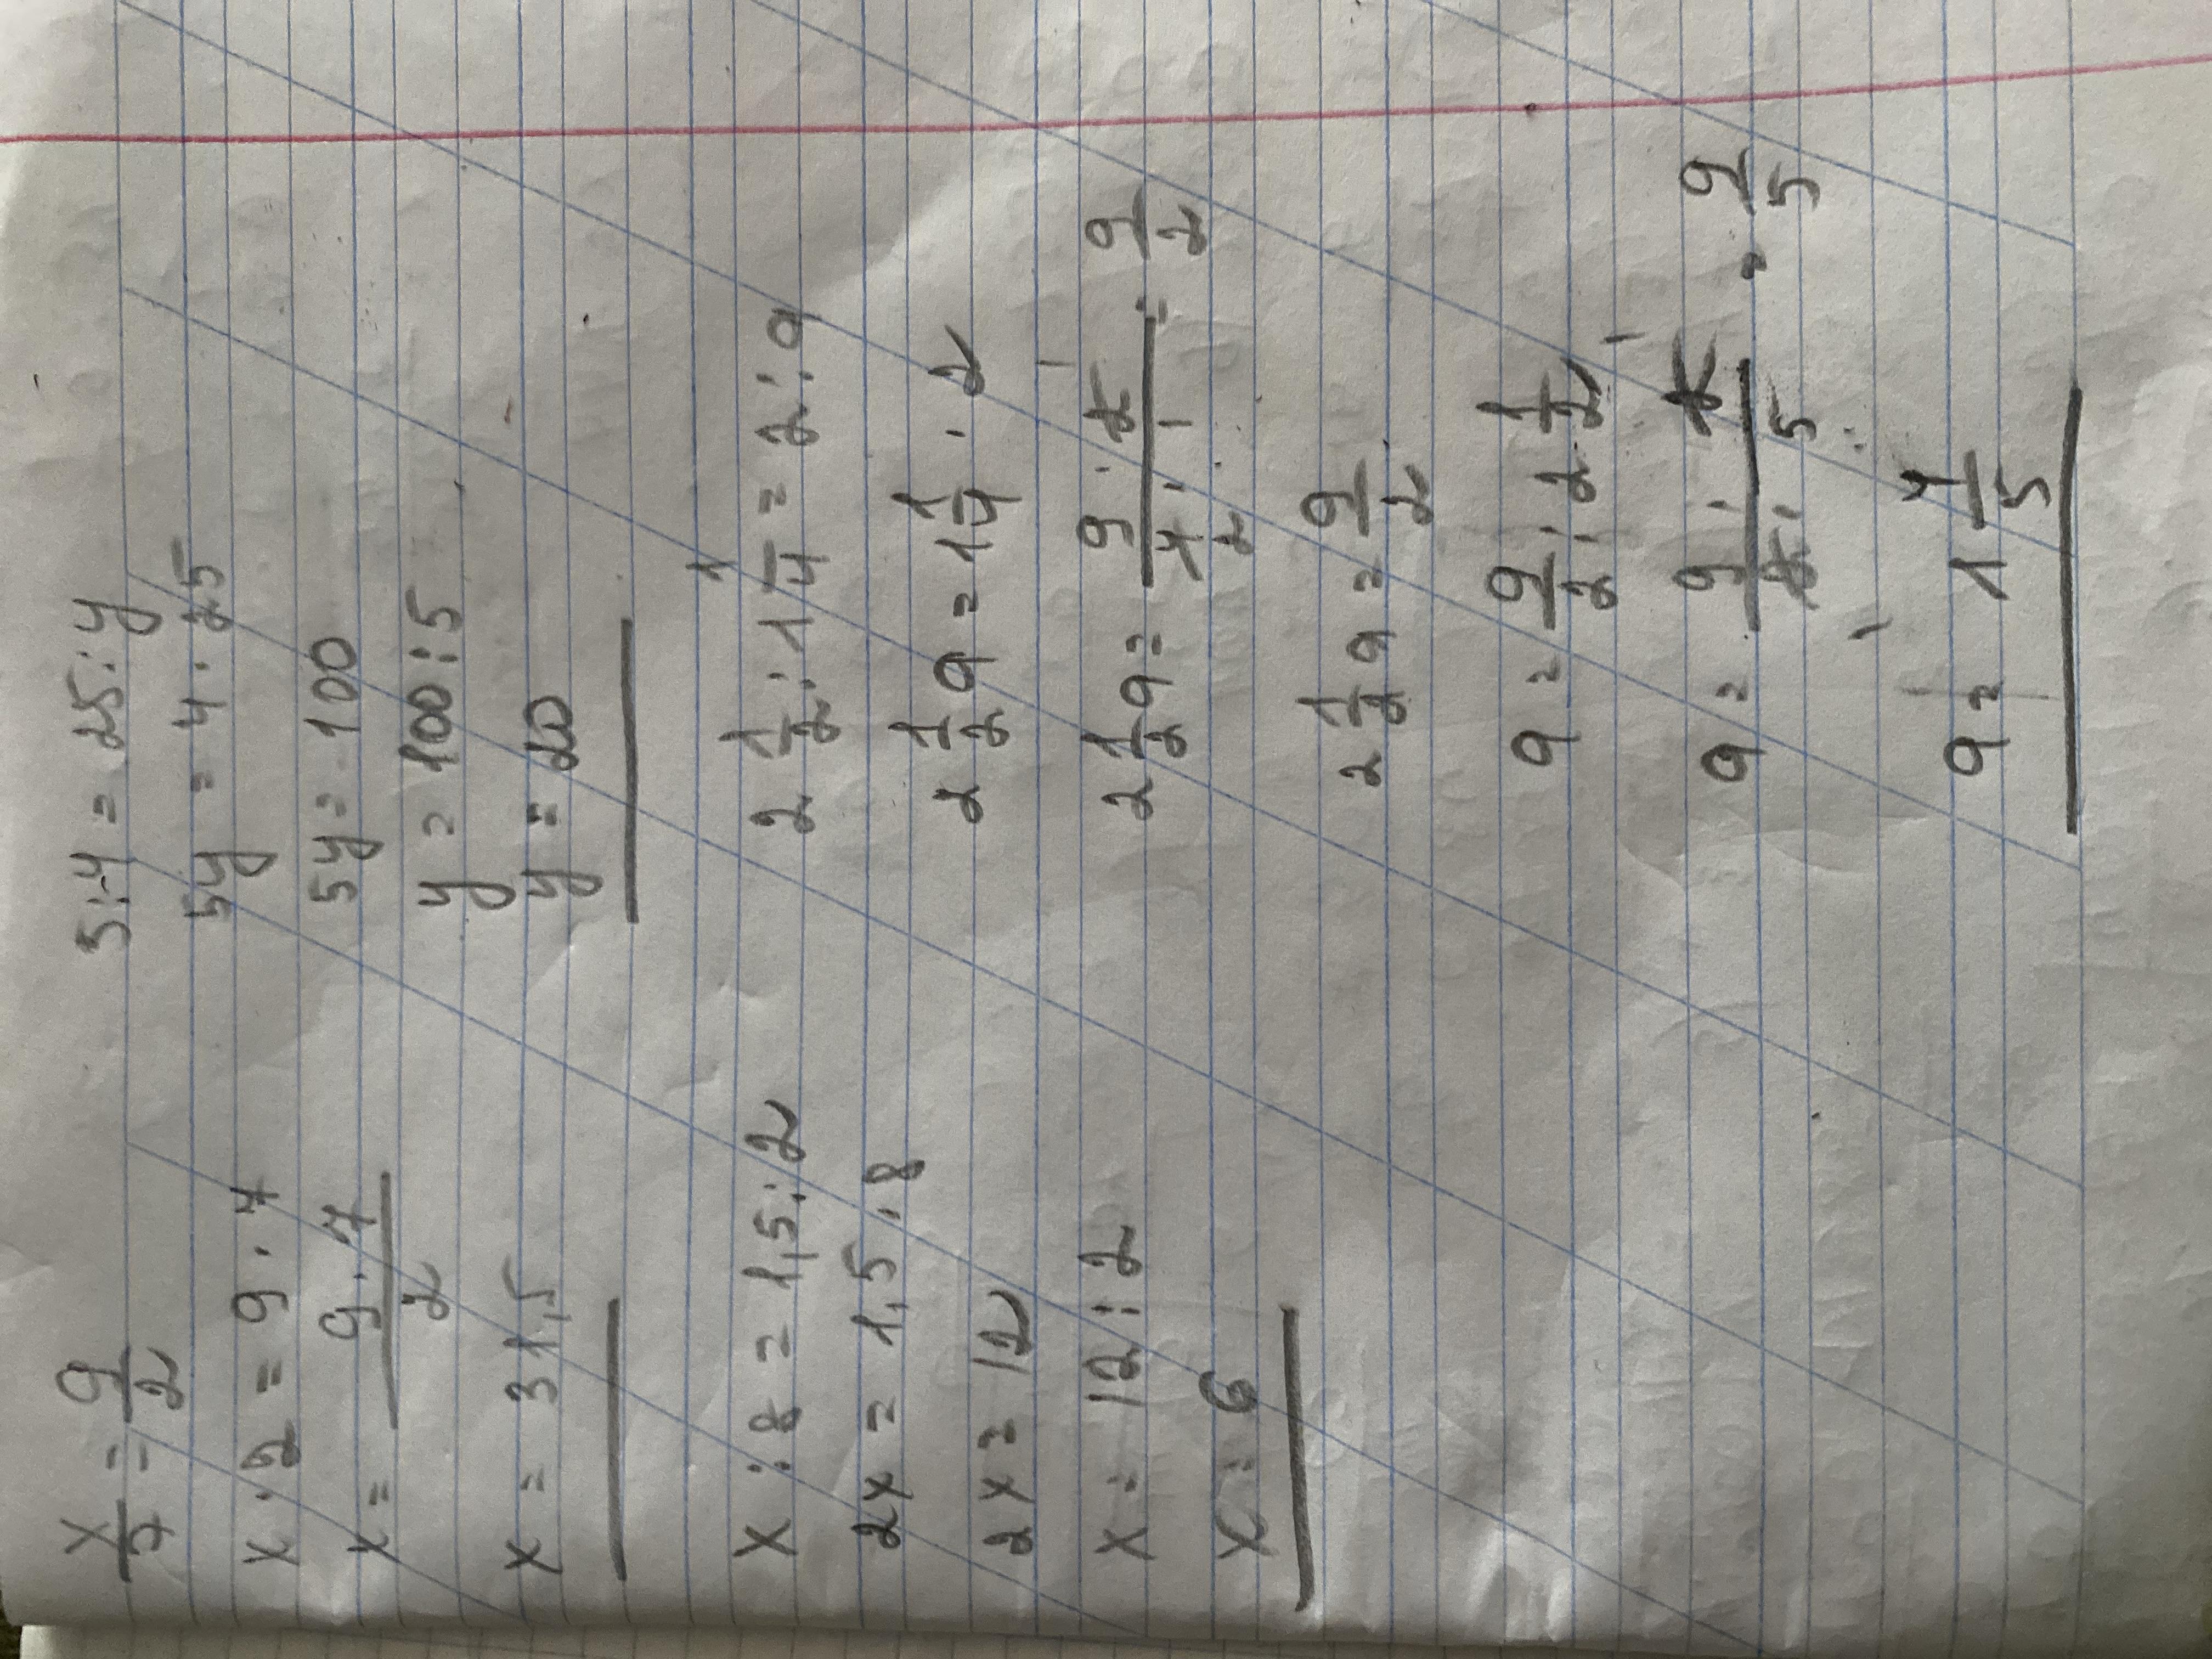 x/7 = 9/2
x · 2 = 9 · 7
x = 9 · 7 / 2
x = 31,5
5 : 4 = 25 : y
5y = 4 · 25
5y = 100
y = 100 : 5
y = 20
x : 8 = 1,5 : 2
2x = 1,5 · 8
2x = 12
x = 12 : 2
x = 6
2 1/2 : 1 1/4 = 2 : a
2 1/2 a = 1 1/4 · 2
2 1/2 a = 9 · 2 / 4 · 1 = 9/2
2 1/2 a = 9/2
a = 9/2 : 2 1/2
a = 9 · 2 / 2 · 5 = 9/5
a = 1 4/5